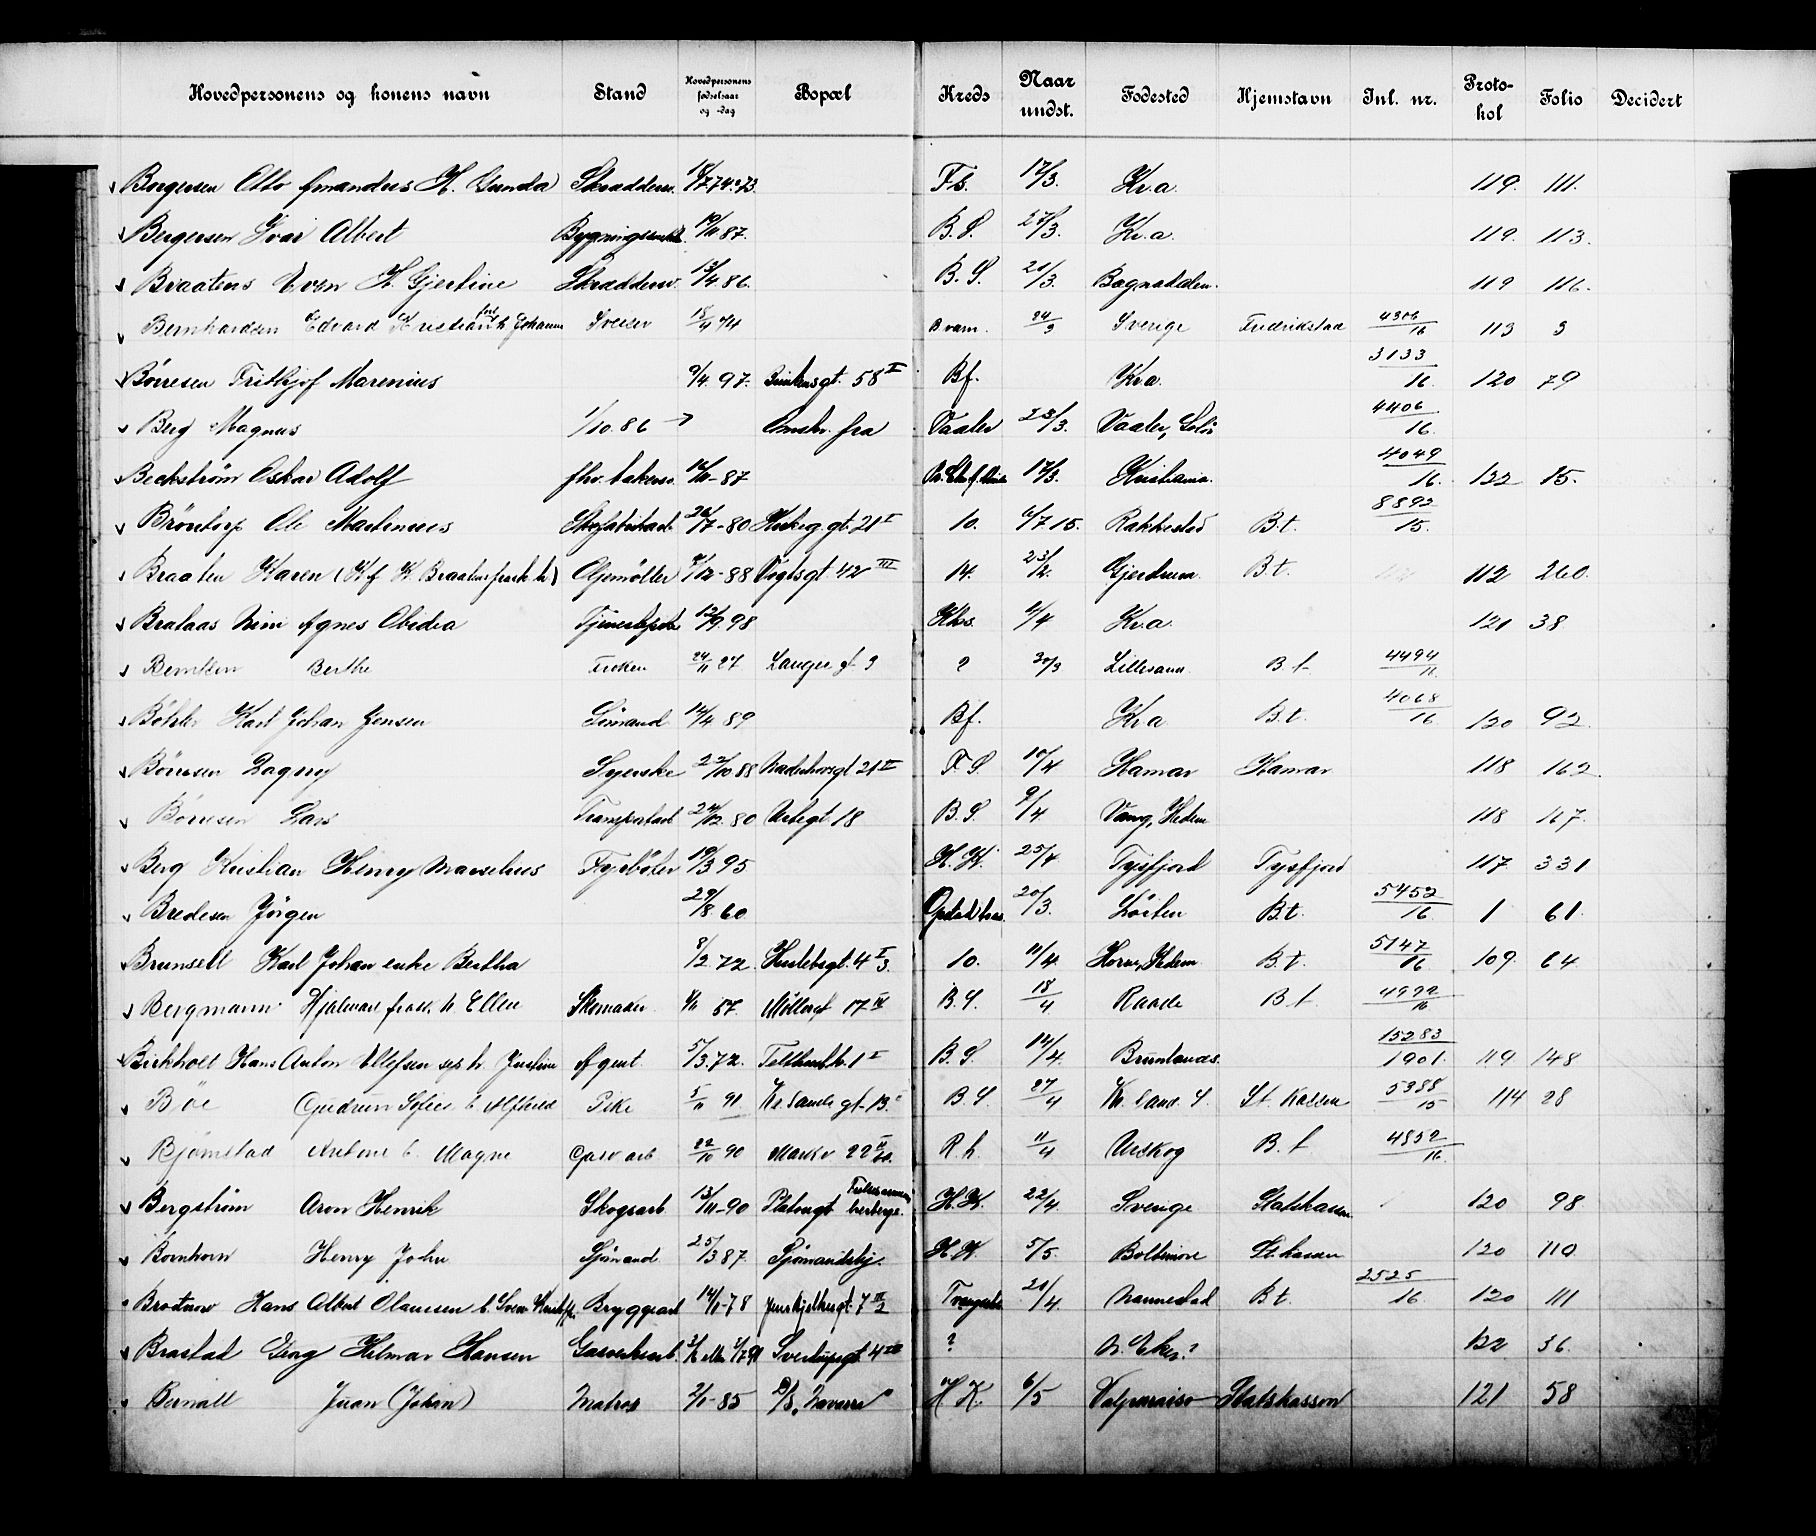 Hovedpersonens og konens navn Stand Hovedpersonens fødselsaar og -dag Bopæl Kreds Naar undst. Fødested Hjemstavn Inl. nr. Protokol Folio Decidert
Borgersen Otto Amandus H. Gunda Skrædderm. 18/7 74 Fs. 17/3. Kr.a. 119. 111.
Bergersen Ivar Albert 19/11 87. B.S. 27/3. Kr.a. 119. 113.
Braatens Even H. Gjertine Skræddersv. 13/4. 86. B. S. 21/3. 119 116.
Bernhardsen Edvard Kristian h. Johanne Sveiser 18/11 74 B varm. 24/3 Sverige Fredrikstad 4306/16 113 3
Børresen Frithjof Marenius 9/4. 97. 58 II Bf. Kr.a. 3133/16. 120 79
Berg Magnus 1/10. 86 → fra Vaaler 23/3. Vaaler, Solør 4406/16.
Beckstrøm Oskar Adolf fhv. bakersv. 12/11-87 17/3. Kristiania. 4049/16. 122 15.
Brøntorp Ole Martinius 26/7-80 21 I 10. 6/7 15. Rakkestad B.t. 8892/15.
Braaten Karen (H f K. Braatens frask. h.) Oljemøller 9/12-88 Vogtsgt. 42 III 14. 23/2. Gjerdrum. B.t. 112 260.
Brataas Mimi Agnes Obidia 12/9. 98 Khs. 6/4 Kr.a. 121 38
Berntsen Berthe Enken 24/11 27 Langes gt 3 ? 30/3 Lillesand B t 4494/16.
Karl Johan Jensen Sømand 14/4 89 Bf. Kr.a B.t. 4068/16. 120 92.
Børresen Dagny Syerske 22/10 88 21 II F. S. 10/4 Hamar Hamar 118 162.
Børresen Lars Transportarb. 24/12. 80 Urtegt. 18 B. S. 9/4. Vang, Hedem 118 167.
Berg Kristian Henry Marselius Fyrbøter 19/3 95 H. K. 25/4 Tysfjord Tysfjord 117. 331
Bredesen Jørgen 29/8 60 Opstadhus. 20/3. Løiten B.t. 5452/16. 1 61.
Brunsell Karl Johan enke Bertha 8/2. 72. Herslebsgt. 4 I/3. 10. 11/4. Hedem B.t. 5147/16. 109. 64
Bergmann Hjalmar frask. h. Ellen Skomaker 57. Møllergt 17 IV B. S. 18/4 Raade B.t. 4992/16
Birkholt Hans Anton Ellefsen sep. h. Justine Agent 5/3. 72. 1 I B. S. 14/4. Brunlanes. 15283/1901. 119. 148
Bøe Gudrun Sofie b. Alfhild Pike 5/11 91 Kr.sands gt. 13. B. S. 27/4 Kr.sand. S. St. Kassen 5388/15 114 28
Bjørnstad Antone b. Magne Garv arb 22/10 90 Markv 22 II R. h. 11/4 Urskog B. t 4852/16.
Bergstrøm Aron Henrik Skogsarb 13/11-90 Platousgt Frelsesarmeens herberge. H. K. 22/4. Sverige Statskassen. 120 98.
Bornhorn Henry John Sjømand. 25/3 87. Sjømandshj. H. K. 5/5. Boltimore St. kassen 120 110
Hans Albert Olaussen b. Bryggearb 14/1-78 Jens Bjelkesgt. 7 III/2 21/4. Nannestad B t. 2525/16. 120 111
Brastad Georg Hilmar Hansen Gasverksarb. Sverdrupsgt. 4 III ? N. Eker.? 122 36.
Bernall Juan (Johan) Matros 2/1-85 D/S "Navarra" H K. 6/5 Valparaiso Statskassen 121 58